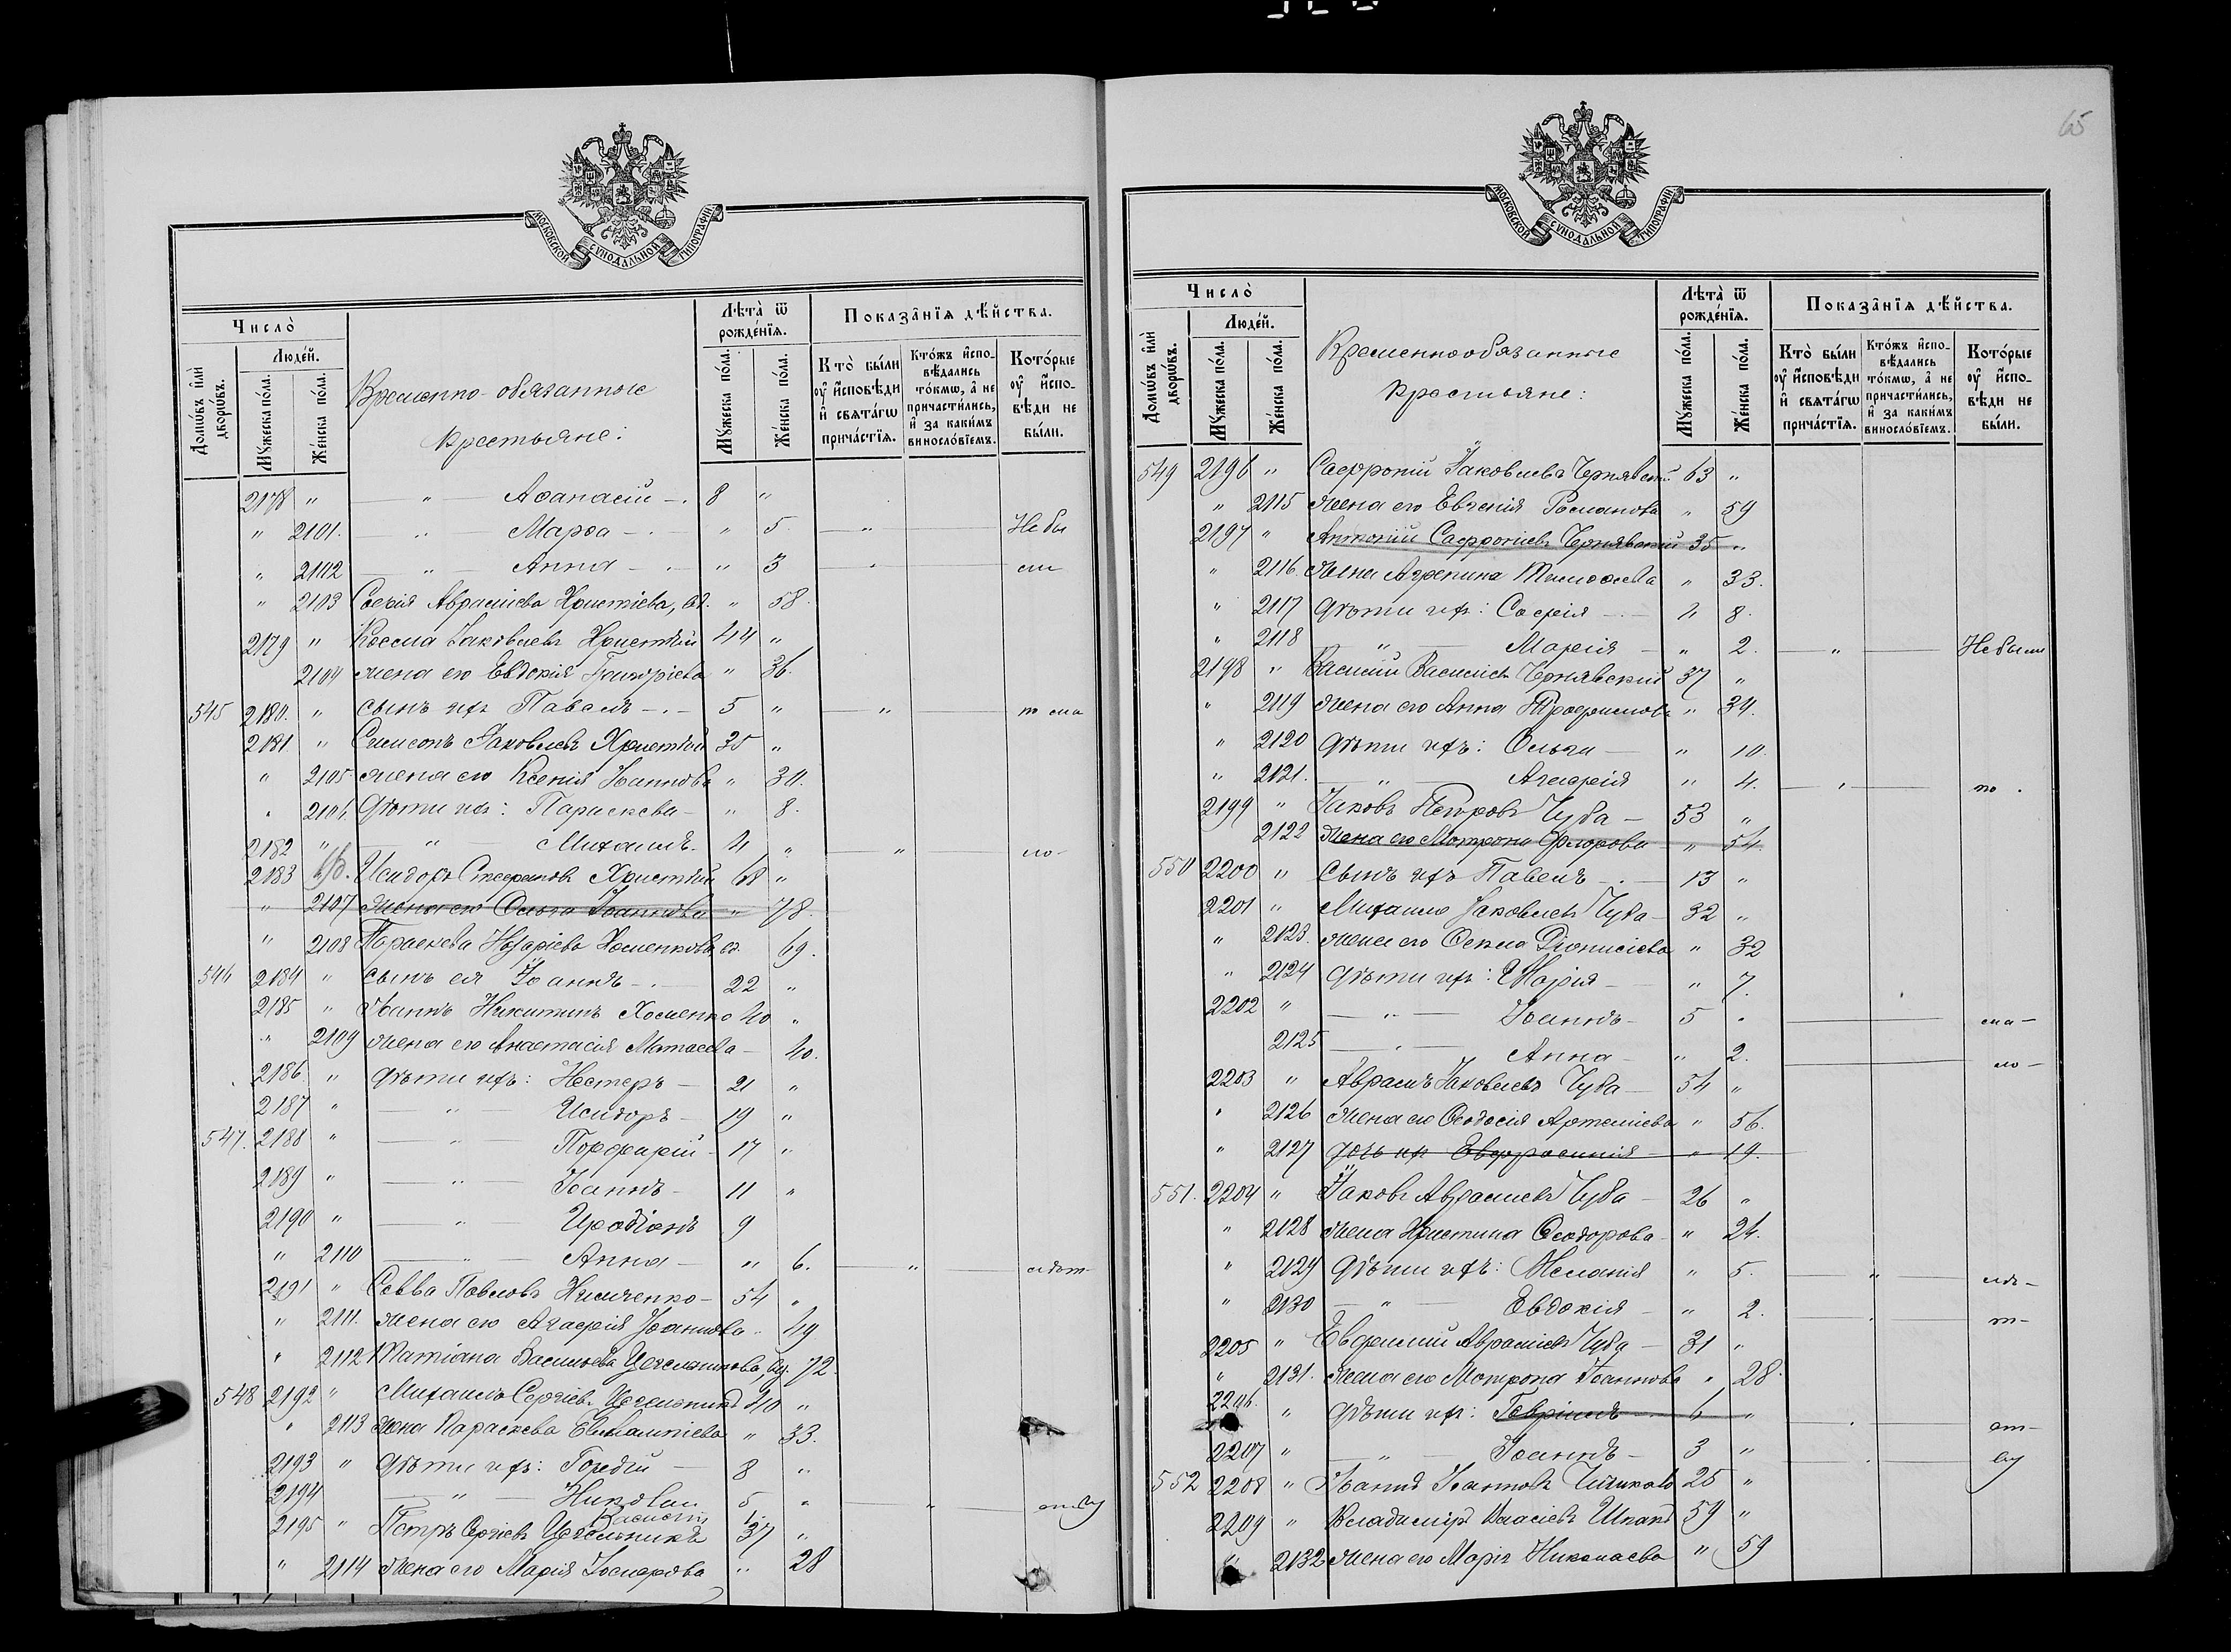 65
МОСКОВСКОЙ СУНОДАЛЬНОЙ ТИПОГРАФІИ
Число̀
Домѡ́въ и҆лѝ дворѡ́въ.
Люде́й.
Мꙋ́жеска по́ла.
Же́нска по́ла.
Временно-обязанные
крестьяне:
Лѣ́та ѿ рожде́нїѧ.
Мꙋ́жеска по́ла.
Же́нска по́ла.
Показа̑нїѧ дѣ́йства.
Кто̀ бы́ли ᲂу҆ и҆сповѣ́ди и҆ свѧта́гѡ прича́стїѧ.
Кто́жъ и҆спо-вѣ́дались то́кмѡ, а҆ не причасти́лись, и҆ за каки́мъ винослⷪ҇вїемъ.
Кото́рые ᲂу҆ и҆спо-вѣ́ди не бы́ли.
2178 " — " — Аѳанасій — 8 "
" 2101. — " — Марѳа — " 5 — " — Не бы
" 2102 — " — Анна — " 3 — " — ли
" 2103 Софія Авраміева Христіева, вд. " 58.
2179 " Косма Іаковлевъ Христій 44 "
2104 жена его Евдокія Григоріева " 36.
545 2180. " сынъ ихъ Павелъ — 5 " — " — по ма
2181 " Симеонъ Іаковлевъ Христій 35 "
" 2105 жена его Ксенія Іоаннова " 30.
" 2106 Дѣти ихъ: Параскева — " 8.
2182 " — " — Михаилъ. 4 " — " — ло-
2183 Исидоръ Стефановъ Христій 68 "
" 2107 жена его Ольга Іоаннова " 78.
" 2108 Параскева Назаріева Хоменкова вд. 69.
546 2184 " сынъ ея Іоаннъ — 22 "
2185 " Іоаннъ Никитинъ Хоменко 40 "
" 2109 жена его Анастасія Матѳеева — 40.
2186. " Дѣти ихъ: Нестеръ — 21 "
2187 " — " — Исидоръ — 19 "
547. 2188 " — " Порфирій — 17 "
2189 " — " — Іоаннъ — 11 "
2190 " — " — Иродіонъ 9
" 2110 — " — Анна — " 6. — " — лѣт-
2191 " Савва Павловъ Нимченко — 54 "
" 2111. жена его Агафія Іоаннова " 49
" 2112 Татіана Васильева Цегельникова, вд. 72.
548 2192 " Михаилъ Сергіевъ Цегельникъ 40 "
" 2113 жена Параскева Евлампіева " 33.
2193 " Дѣти ихъ: Гордій — 8 "
2194 — " — Николай 5 " — " —
Василій 1
2195 " Петръ Сергіевъ Цегельникъ 37 "
" 2114 жена его Марія " 28
МОСКОВСКОЙ СУНОДАЛЬНОЙ ТИПОГРАФІИ
Число̀
Домѡ́въ и҆лѝ дворѡ́въ.
Люде́й.
Мꙋ́жеска по́ла.
Же́нска по́ла.
Временнообязанные
крестьяне:
Лѣ́та ѿ рожде́нїѧ.
Мꙋ́жеска по́ла.
Же́нска по́ла.
Показа̑нїѧ дѣ́йства.
Кто̀ бы́ли ᲂу҆ и҆сповѣ́ди и҆ свѧта́гѡ прича́стїѧ.
Кто́жъ и҆спо-вѣ́дались то́кмѡ, а҆ не причасти́лись, и҆ за каки́мъ винослⷪ҇вїемъ.
Кото́рые ᲂу҆ и҆спо-вѣ́ди не бы́ли.
549 2196 " Софроній Іаковлевъ Чернявскій 63 "
" 2115 жена его Евгенія Романова " 59
2197 " Антоній Софроніевъ Чернявскій 35 "
" 2116. жена Агрепина Тимоѳеева " 33.
" 2117 Дѣти ихъ: Софія — " 8.
" 2118 — " — Марія — " 2. — " — Не были
2198 " Василій Васильевъ Чернявскій 37 "
" 2119 жена его Анна Трофимова " 34.
" 2120 Дѣти ихъ: Ольга — " 10.
" 2121. — " — Агафія " 4. — " — по
2199 " Іаковъ Петровъ Чуба — 53 "
2122 жена его Матрона Флорова — " 54.
550 2200 " сынъ ихъ Павелъ — 13 "
2201 " Михаилъ Іаковлевъ Чуба — 32 "
" 2123. жена его Ѳекла Діонисіева " 32
" 2124 Дѣти ихъ: Марія — " 7.
2202 " — " — Іоаннъ — 5 " — ма —
2125 — " — Анна — " 2. — ло —
2203 " Аврамъ Іаковлевъ Чуба — 54 "
" 2126 жена его Ѳеодосія Артеміева " 56.
" 2127 дочь их Евфросинія — " 19.
551. 2204 " Іаковъ Аврамовъ Чуба — 26 "
" 2128 жена Христина Ѳеодорова — " 24.
" 2129 Дѣти ихъ: Меланія " 5. — " — лѣ-
" 2130 — " — Евдокія — " 2. — т-
2205 " Евфимій Авраміевъ Чуба — 31 "
" 2131. жена его Матрона Іоаннова " 28.
2206. " Дѣти ихъ: Гавріилъ — 6 "
2207 " — " — Іоаннъ — 3 "
552 2208 " Іоаннъ Іоанновъ 25 "
2209 " Владиміръ Власіевъ 59 "
" 2132 жена его Марія Николаева " 59